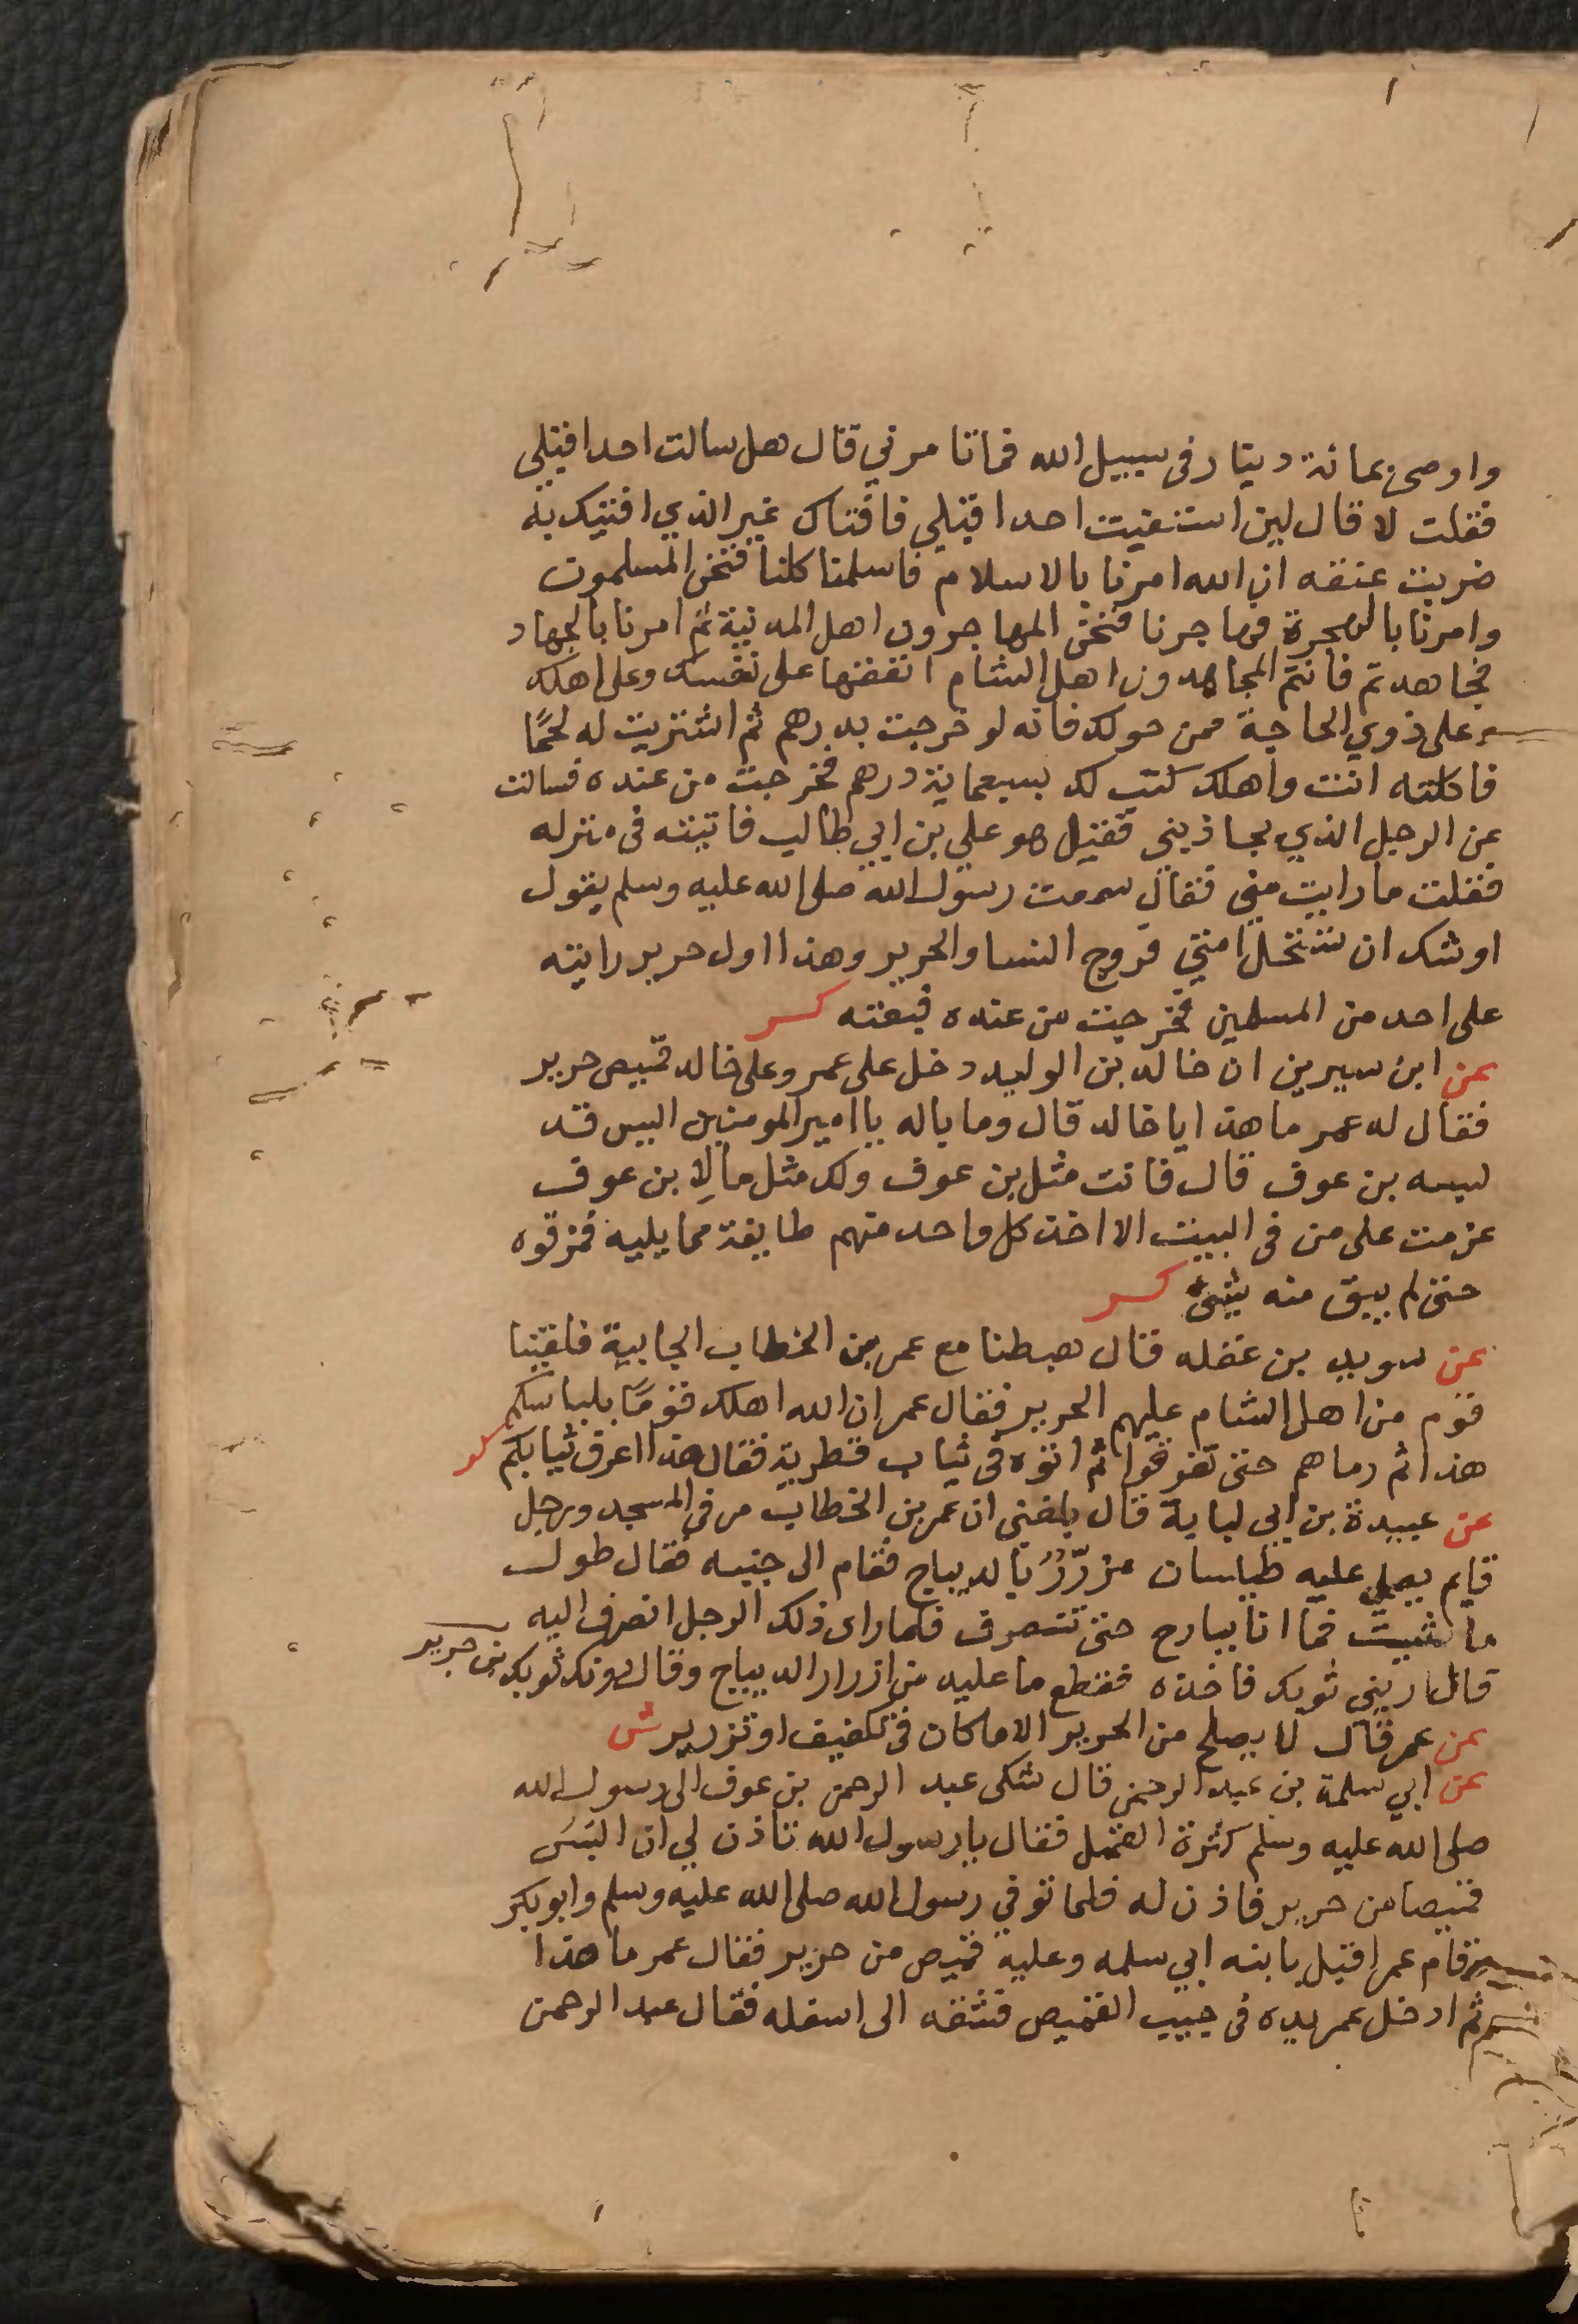 واوصى بمائة دينار فى سبيل الله فما تامرني قال هل سالت احدا قبلي
فقلت لا قال لين استفتيت احدا قبلي فافتاك غير الذي افتيتك به
ضربت عنقه ان الله امرنا بالاسلام فاسلمنا كلنا فنحن المسلمون
وامرنا بالهجرة فهاجرنا فنحن المهاجرون اهل المدينة ثم امرنا بالجهاد
فجاهدتم فانتم المجاهدون اهل الشام انفقها على نفسك وعلى اهلك
وعلى ذوي الحاجة ممن حولك فانه لو خرجت بدرهم ثم اشتريت له لحمًا
فاكلته انت واهلك كتب لك بسبعماية درهم فخرجت من عنده فسالت
عن الرجل الذي يجاذبنى فقيل هو علي بن ابي طالب فاتيته فى منزله
فقلت ما رابت منى فقال سمعت رسول الله صلى الله عليه وسلم يقول
اوشك ان تستحل امتي فروج النسا والحرير وهذا اول حرير رايته
على احد من المسلمين فخرجت من عنده فبعته كر
عن ابن سيرين ان خالد بن الوليد دخل على عمر وعلى خالد قميص حرير
فقال له عمر ما هذا يا خالد قال وما باله يا امير المومنين اليس قد
لبسه بن عوف قال فانت مثل بن عوف ولك مثل ما لابن عوف
عزمت على من فى البيت الا اخذ كل واحد منهم طايفة مما يليه فمزقوه
حتى لم يبق منه شئ كر
عن سويد بن غفله قال هبطنا مع عمر بن الخطاب الجابية فلقينا
قوم من اهل الشام عليهم الحرير فقال عمر ان الله اهلك قومًا بلباسكم
هذا ثم رماهم حتى تفرقوا ثم اتوه فى ثياب قطرية فقال هذا اعرف ثيابكم كر
عن عبيدة بن ابى لبابة قال بلغنى ان عمر بن الخطاب مر فى المسجد ورجل
قايم يصلي عليه طيلسان مزرّرُ بالديباج فقام الى جنبه فقال طول
ما شيت فما انا ببارح حتى تنصرف فلما راى ذلك الرجل انصرف اليه
قال ارينى ثوبك فاخذه فقطع ما عليه من ازرار الديباج وقال دونك ثوبك بن جرير
عن عمر قال لا يصلح من الحرير الا ما كان فى تكفيف او تزرير ش
عن ابي سلمة بن عبد الرحمن قال شكى عبد الرحمن بن عوف الى رسول الله
صلى الله عليه وسلم كثرة القمل فقال يا رسول الله تاذن لي ان البسَ
قميصا من حرير فاذن له فلما توفي رسول الله صلى الله عليه وسلم وابو بكر
وقام عمر اقبل بابنه ابي سلمه وعليه قميص من حرير فقال عمر ما هذا
ثم ادخل عمر يده فى جيب القميص فشقه الى اسفله فقال عبد الرحمن